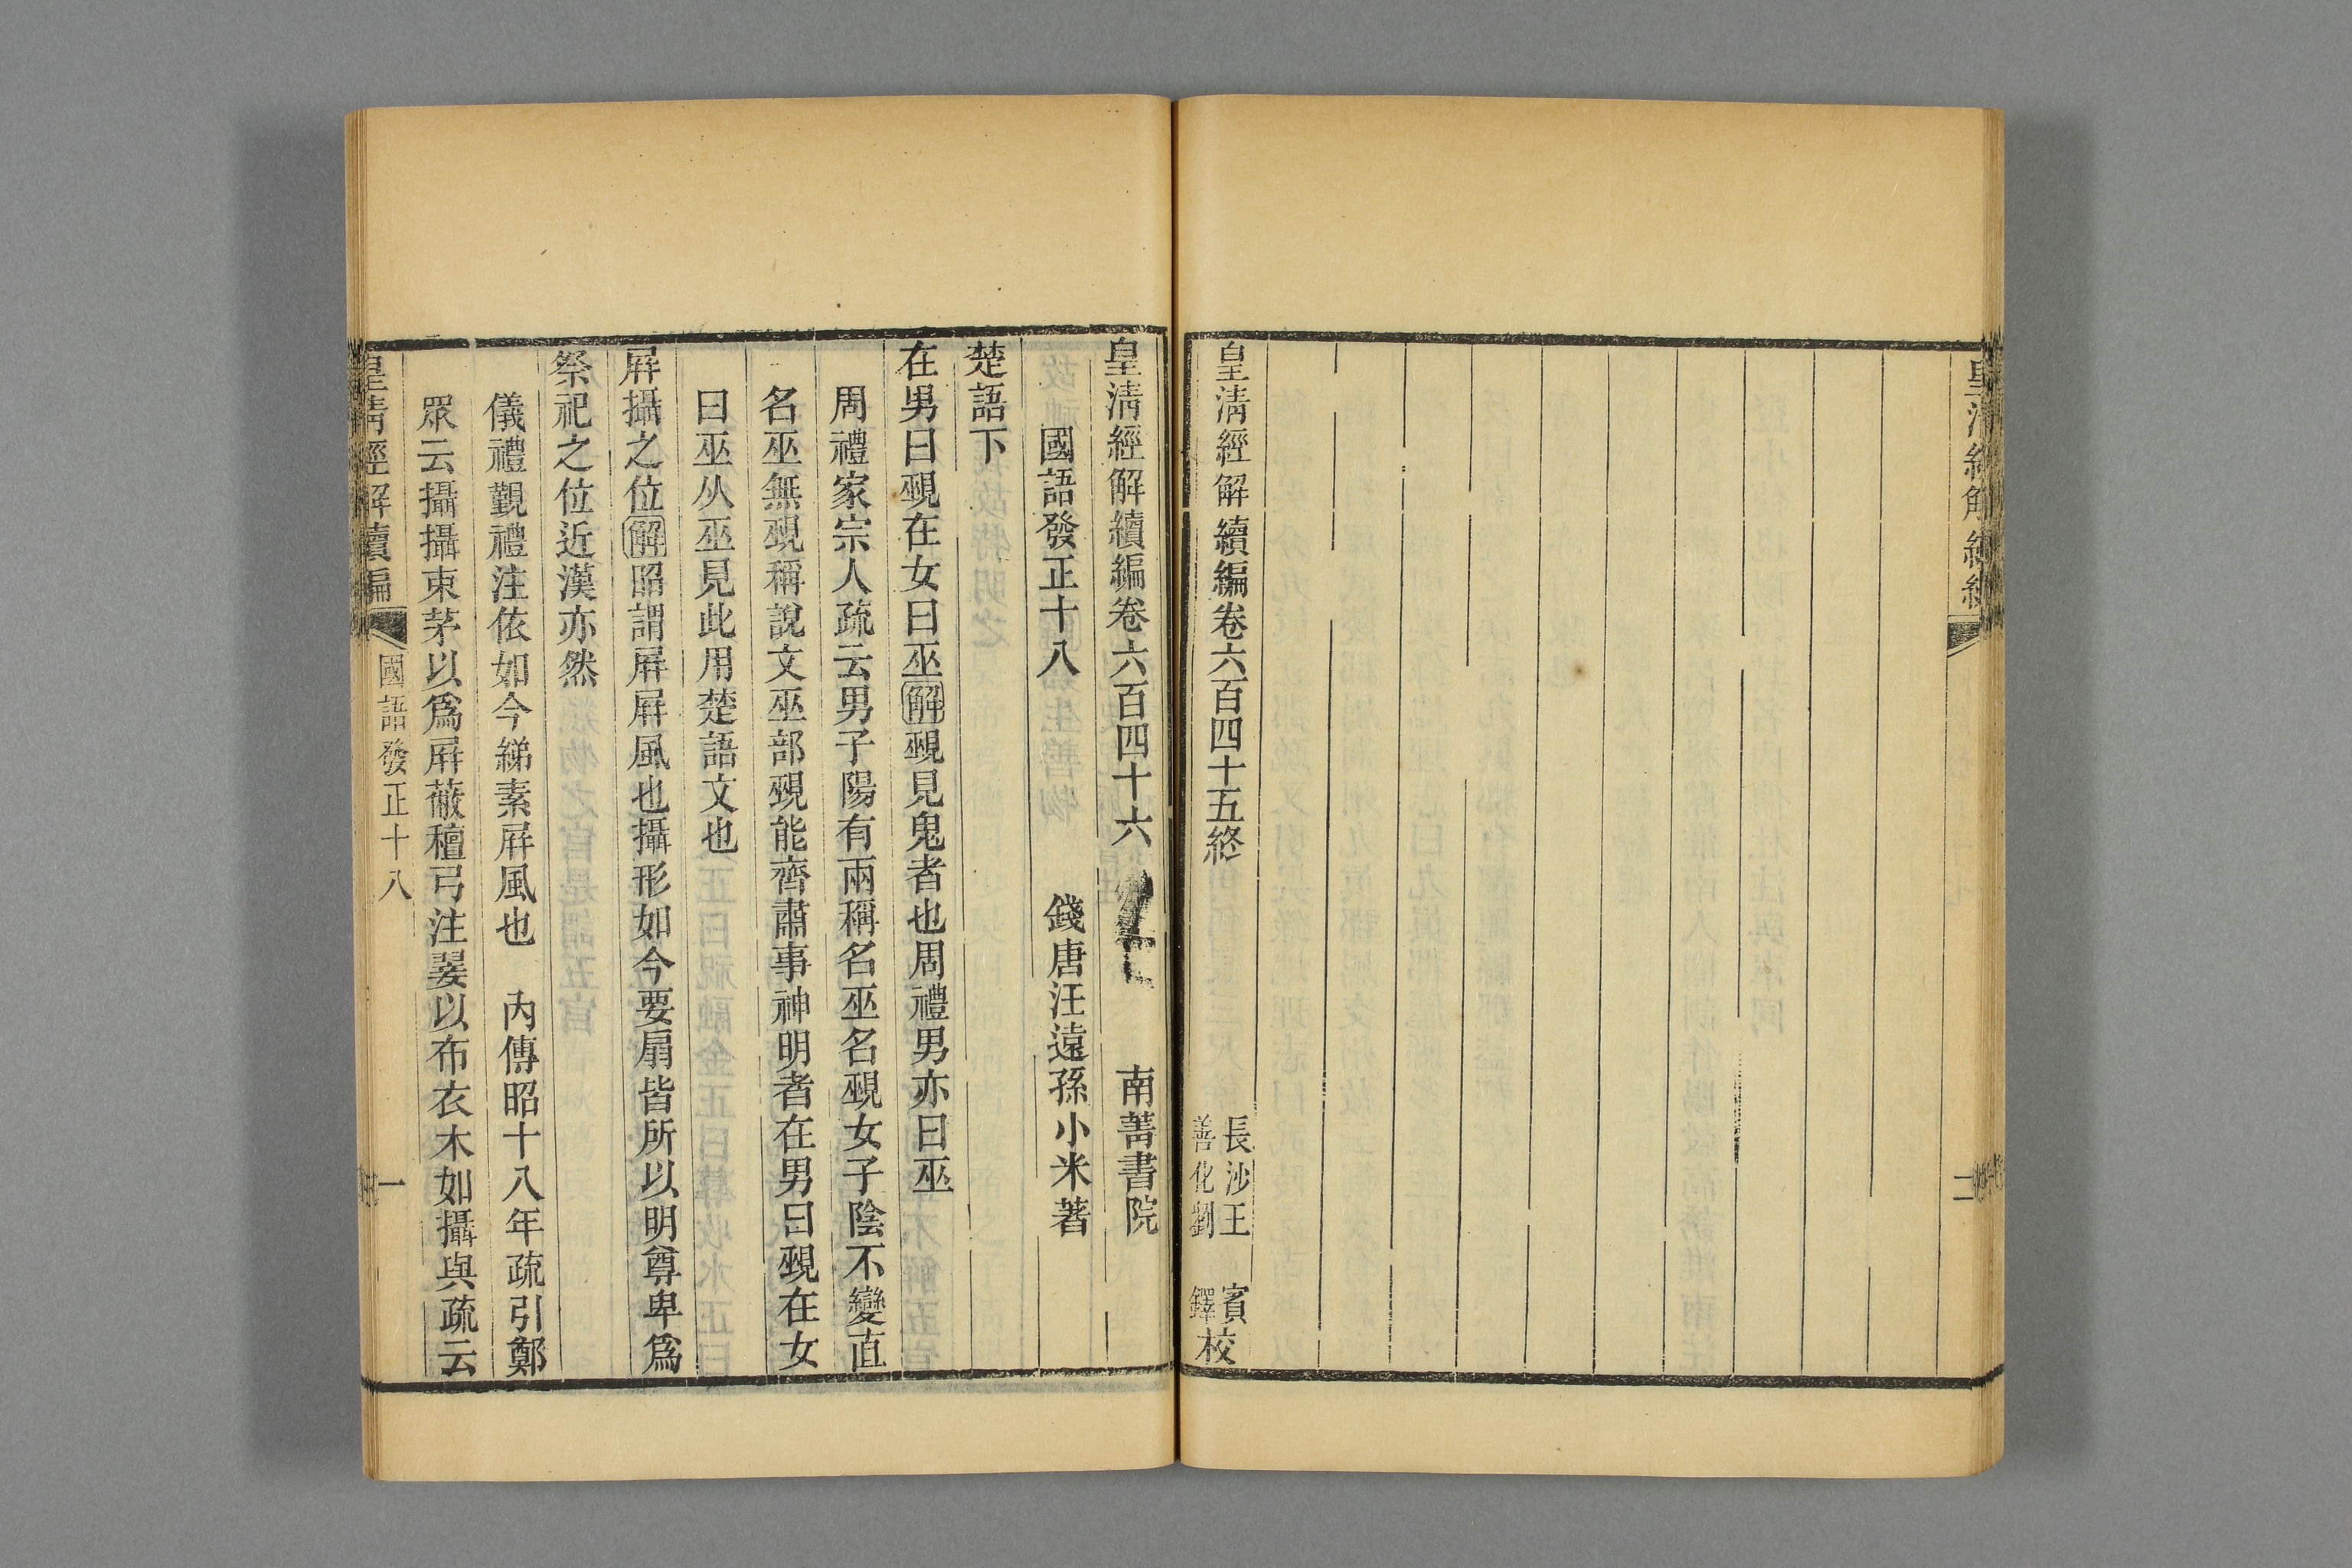 皇清經解續編
二
皇清經解續編卷六百四十五終
長沙王　賓
善化劉　鐸
校
皇清經解續編卷六百四十六　南菁書院
國語發正十八　錢唐汪遠孫小米著
楚語下
在男曰覡在女曰巫解覡見鬼者也周禮男亦曰巫
周禮家宗人疏云男子陽有兩稱名巫名覡女子陰不變直
名巫無覡稱說文巫部覡能齊肅事神明者在男曰覡在女
曰巫从巫見此用楚語文也
屛攝之位解昭謂屛屛風也攝形如今要扇皆所以明尊卑爲
祭祀之位近漢亦然
儀禮覲禮注依如今綈素屛風也　內傳昭十八年疏引鄭
眾云攝攝束茅以爲屛蔽檀弓注翣以布衣木如攝與疏云
皇清經解續編　國語發正十八　一